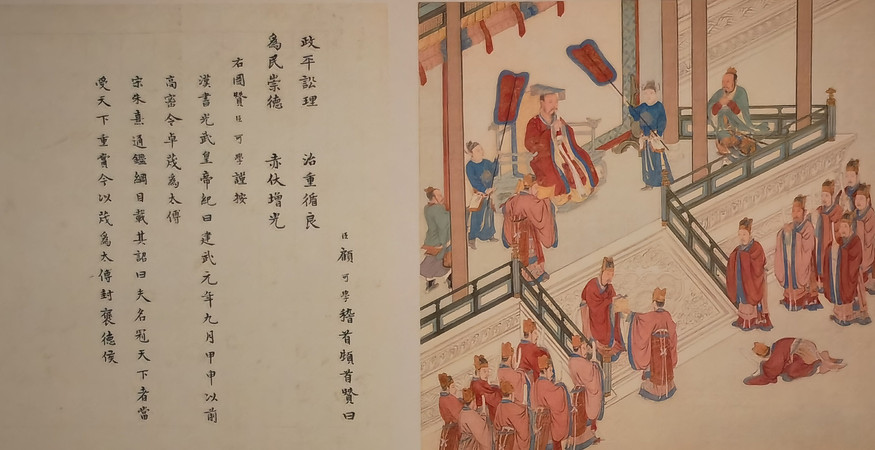 臣顧可學稽首頓首贊曰
政平訟理 治重循良
為民崇德 赤伏增光
右國贊臣可學謹按
漢書光武皇帝紀曰建武元年九月甲申以前
高密令卓茂為太傅
宋朱熹通鑑綱目載其詔曰夫名冠天下者當
受天下重賞今以茂為太傅封褒德侯